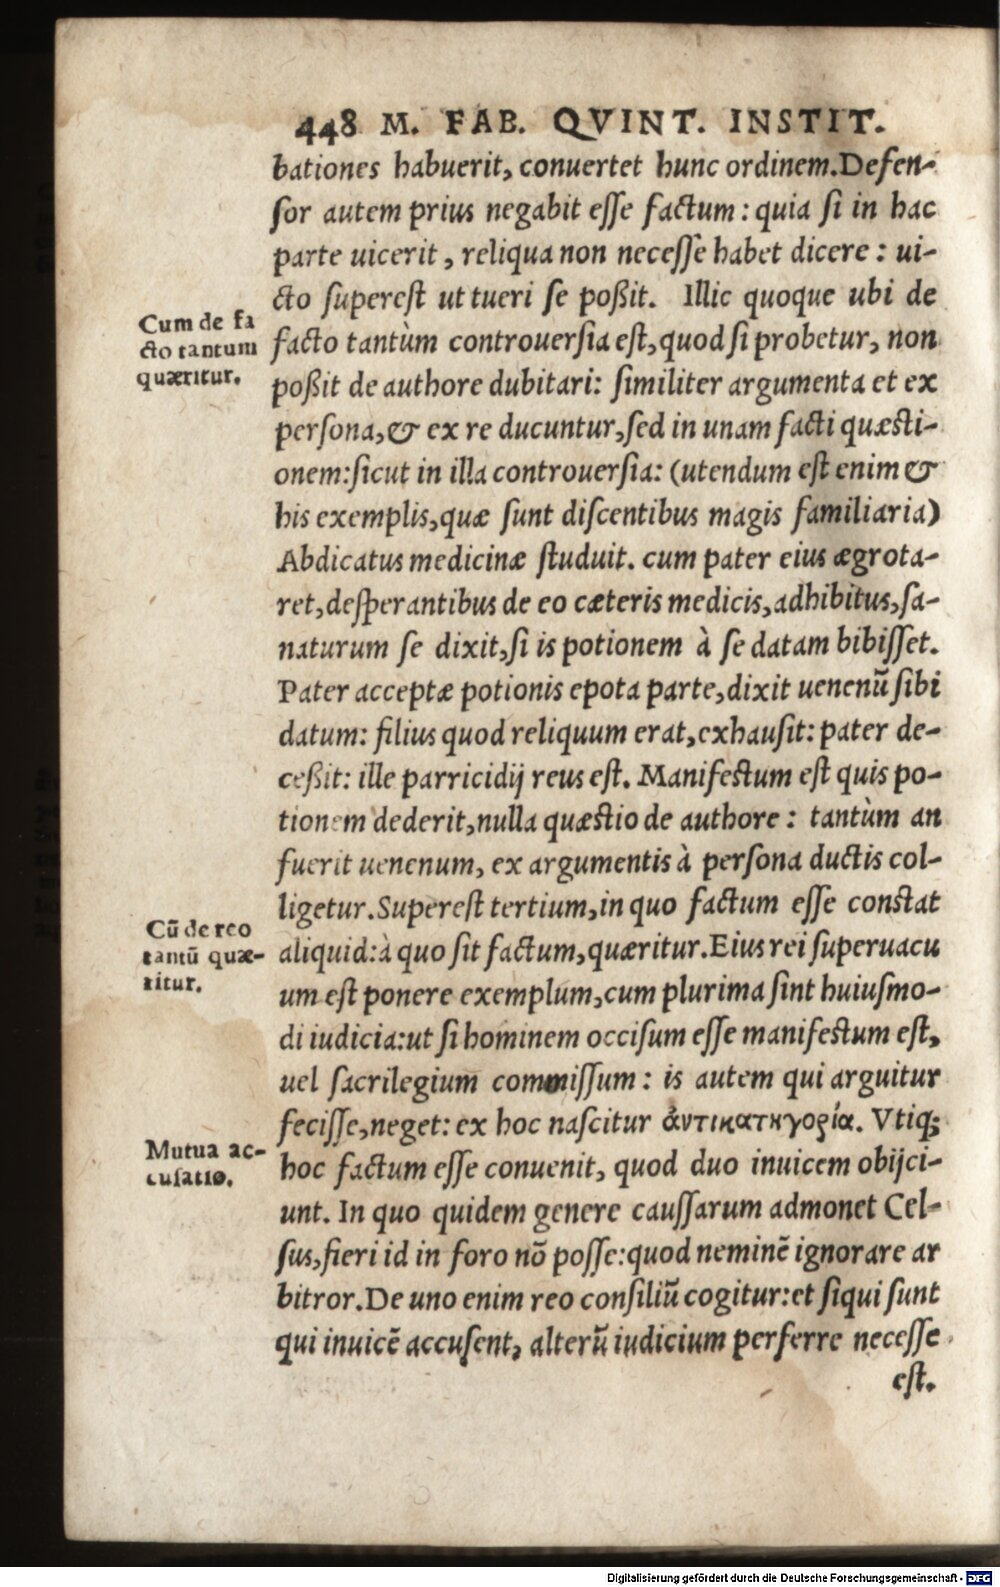 448 M. FAB. QVINT. INSTIT.
bationes habuerit, conuertet hunc ordinem. Defen-
ſor autem prius negabit eſſe factum: quia ſi in hac
parte uicerit, reliqua non neceſſe habet dicere: ui-
cto ſupereſt ut tueri ſe poßit. Illic quoque ubi de
Cum de fa
cto tantum
quæritur.
facto tantùm controuerſia eſt, quod ſi probetur, non
poßit de authore dubitari: ſimiliter argumenta et ex
perſona, & ex re ducuntur, ſed in unam facti quæſti-
onem: ſicut in illa controuerſia: (utendum eſt enim &
his exemplis, quæ ſunt diſcentibus magis familiaria)
Abdicatus medicinæ ſtuduit. cum pater eius ægrota-
ret, deſperantibus de eo cæteris medicis, adhibitus, ſa-
naturum ſe dixit, ſi is potionem à ſe datam bibiſſet.
Pater acceptæ potionis epota parte, dixit uenenū ſibi
datum: filius quod reliquum erat, exhauſit: pater de-
ceßit: ille parricidij reus eſt. Manifeſtum eſt quis po-
tionem dederit, nulla quæſtio de authore: tantùm an
fuerit uenenum, ex argumentis à perſona ductis col-
ligetur. Supereſt tertium, in quo factum eſſe conſtat
Cū de reo
tantū quæ-
ritur.
aliquid: à quo ſit factum, quæritur. Eius rei ſuperuacu
um eſt ponere exemplum, cum plurima ſint huiuſmo-
di iudicia: ut ſi hominem occiſum eſſe manifeſtum eſt,
uel ſacrilegium commiſſum: is autem qui arguitur
feciſſe, neget: ex hoc naſcitur ἀντικατηγορία. Vtiq;
Mutua ac-
cuſatio.
hoc factum eſſe conuenit, quod duo inuicem obijci-
unt. In quo quidem genere cauſſarum admonet Cel-
ſus, fieri id in foro nō poſſe: quod neminē ignorare ar
bitror. De uno enim reo conſiliū cogitur: et ſiqui ſunt
qui inuicē accuſent, alterū iudicium perferre neceſſe
eſt.
Digitalisierung gefördert durch die Deutsche Forschungsgemeinschaft - DFG